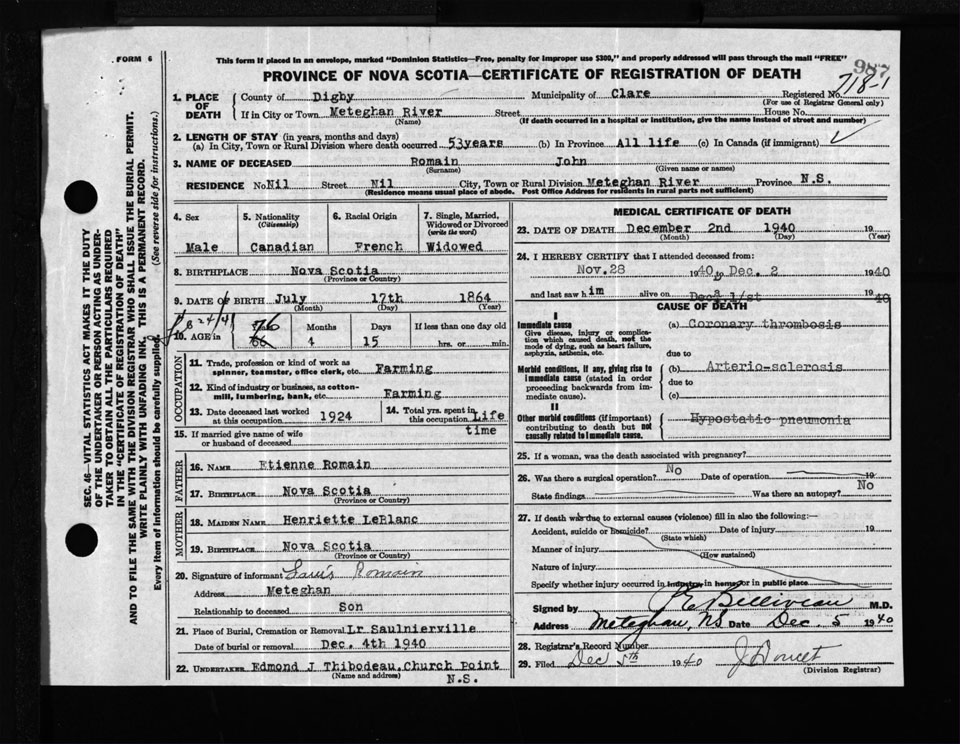 FORM 6
This form if placed in an envelope, marked "Dominion Statistics—Free, penalty for improper use $300," and properly addressed will pass through the mail "FREE"
987
PROVINCE OF NOVA SCOTIA—CERTIFICATE OF REGISTRATION OF DEATH
718-1
1. PLACE OF DEATH County of Digby Municipality of Clare Registered No.
(For use of Registrar General only)
If in City or Town Meteghan River Street House No.
(Name) (If death occurred in a hospital or institution, give the name instead of street and number)
2. LENGTH OF STAY (in years, months and days)
(a) In City, Town or Rural Division where death occurred 53years (b) In Province All life (c) In Canada (if immigrant)
3. NAME OF DECEASED Romain John
(Surname) (Given name or names)
RESIDENCE No Nil Street Nil City, Town or Rural Division Meteghan River Province N.S.
(Residence means usual place of abode. Post Office Address for residents in rural parts not sufficient)
SEC. 46—VITAL STATISTICS ACT MAKES IT THE DUTY
OF THE UNDERTAKER OR PERSON ACTING AS UNDER-
TAKER TO OBTAIN ALL THE PARTICULARS REQUIRED
IN THE "CERTIFICATE OF REGISTRATION OF DEATH"
AND TO FILE THE SAME WITH THE DIVISION REGISTRAR WHO SHALL ISSUE THE BURIAL PERMIT.
WRITE PLAINLY WITH UNFADING INK. THIS IS A PERMANENT RECORD.
Every item of information should be carefully supplied. (See reverse side for instructions.)
4. Sex 5. Nationality (Citizenship) 6. Racial Origin 7. Single, Married, Widowed or Divorced (write the word)
Male Canadian French Widowed
8. BIRTHPLACE Nova Scotia
(Province or Country)
9. DATE OF BIRTH July 17th 1864
(Month) (Day) (Year)
10. AGE in 76 66 Months 4 Days 15 If less than one day old hrs. or min.
OCCUPATION
11. Trade, profession or kind of work as spinner, teamster, office clerk, etc. Farming
12. Kind of industry or business, as cotton-mill, lumbering, bank, etc. Farming
13. Date deceased last worked at this occupation 1924 14. Total yrs. spent in this occupation Life time
15. If married give name of wife or husband of deceased
FATHER
16. NAME Etienne Romain
17. BIRTHPLACE Nova Scotia
(Province or Country)
MOTHER
18. MAIDEN NAME Henriette LeBlanc
19. BIRTHPLACE Nova Scotia
(Province or Country)
20. Signature of informant Louis Romain
Address Meteghan
Relationship to deceased Son
21. Place of Burial, Cremation or Removal Lr Saulnierville
Date of burial or removal Dec. 4th 1940
22. UNDERTAKER Edmond J Thibodeau, Church Point
(Name and address) N.S.
MEDICAL CERTIFICATE OF DEATH
23. DATE OF DEATH December 2nd 1940 19
(Month) (Day) (Year)
24. I HEREBY CERTIFY that I attended deceased from:
Nov. 28 1940 to Dec. 2 1940
and last saw him alive on Dec. 1/st 1940
CAUSE OF DEATH
I
Immediate cause
Give disease, injury or complication which caused death, not the mode of dying, such as heart failure, asphyxia, asthenia, etc.
(a) Coronary thrombosis
due to
Morbid conditions, if any, giving rise to immediate cause (stated in order proceeding backwards from immediate cause).
(b) Arterio-sclerosis
due to
(c)
II
Other morbid conditions (if important) contributing to death but not causally related to immediate cause.
Hypostatic pneumonia
25. If a woman, was the death associated with pregnancy?
26. Was there a surgical operation? No Date of operation 19
State findings Was there an autopsy? No
27. If death was due to external causes (violence) fill in also the following:—
Accident, suicide or homicide? Date of injury 19
(State which)
Manner of injury
(How sustained)
Nature of injury
Specify whether injury occurred in industry, in home or in public place
Signed by M.D.
Address Meteghan, NS Date Dec. 5 1940
28. Registrar's Record Number
29. Filed Dec 5th 1940 J Doucet
(Division Registrar)